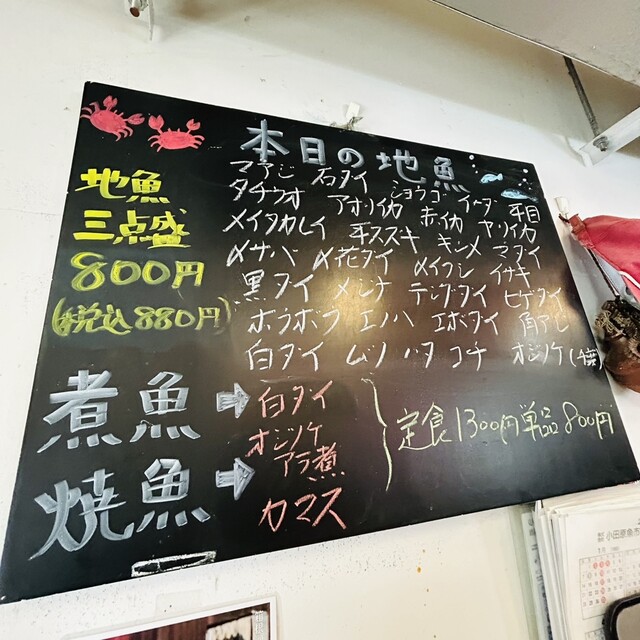 本日の地魚
地魚
三点盛
800円
(税込880円)
マアジ 石ダイ
タチウオ アオリイカ ショウゴ イサダ 平目
メイタカレイ 平スズキ 赤イカ ヤリイカ
〆サバ 〆花ダイ キンメ マダイ
黒ダイ メジナ 〆イワシ イサキ
ホウボウ エノハ テンジクダイ ヒゲダイ
白ダイ ムツ ハタ コチ エボダイ 角アジ
オジノケ
煮魚 → 白ダイ
オジノケ
アラ煮
焼魚 → カマス
定食1300円 単品800円
小田原魚市